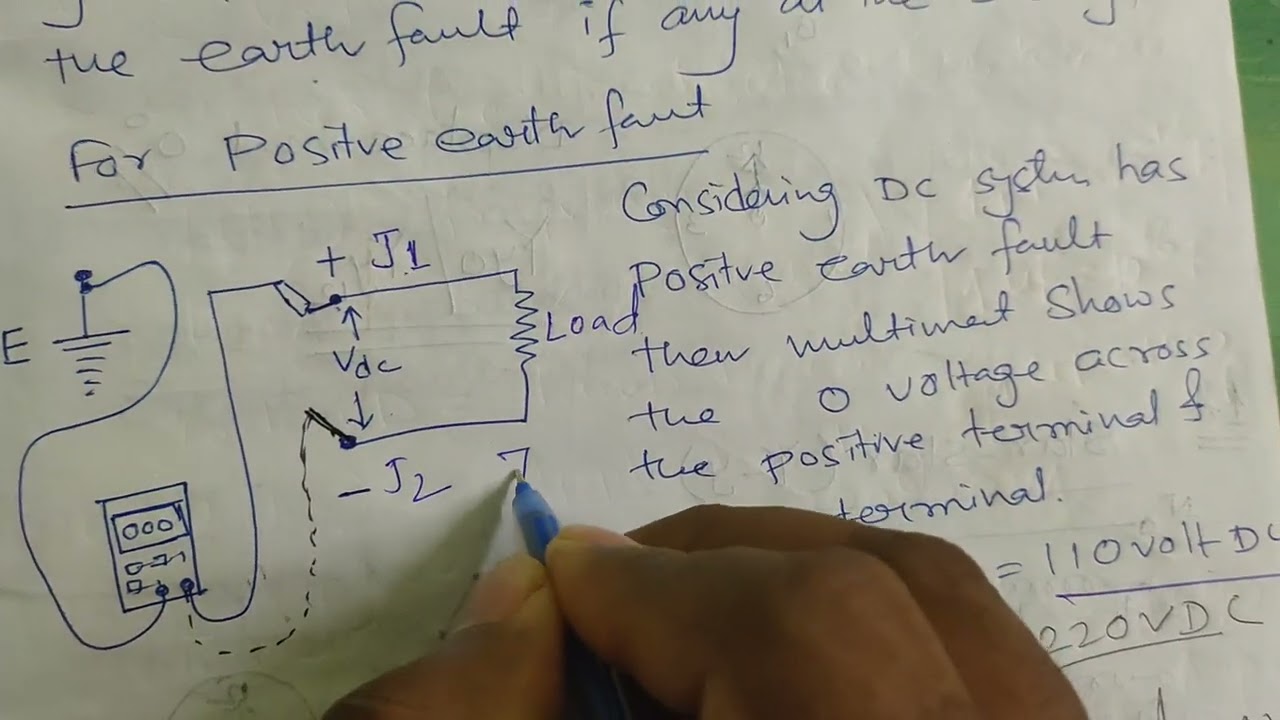 the earth fault if any at the
For Positve earth faut
Considering DC system has
Positve earth fault
then multimeat shows
the 0 voltage across
the positive terminal &
terminal.
= 110volt DC
220VDC
+ J1
Load
E
Vdc
- J2
000